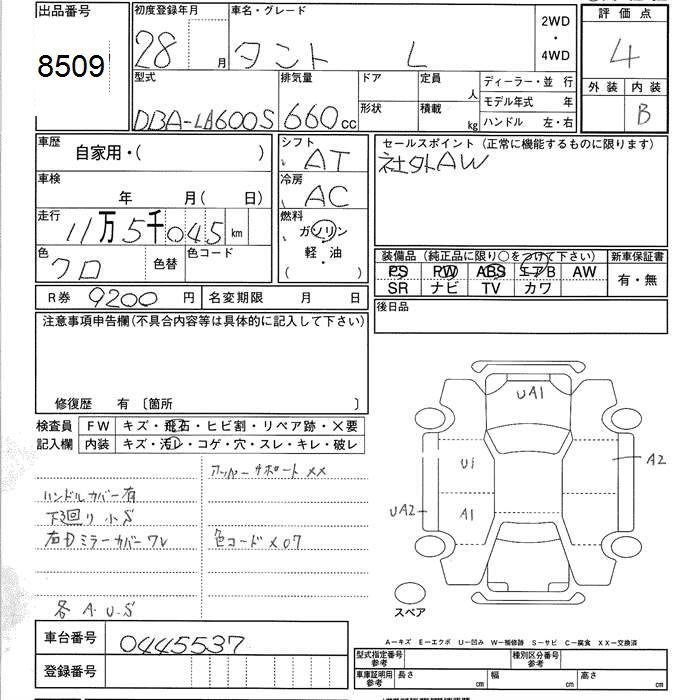 出品番号
8509
初度登録年月
28 月
車名・グレード
タント L
2WD
・
4WD
評 価 点
4
外 装 内 装
B
型式
DBA-LA600S
排気量
660 cc
ドア
形状
定員
人
積載
kg
ディーラー・並 行
モデル年式 年
ハンドル 左・右
車歴
自家用・( )
車検
年 月( 日)
走行
11万5千045 km
色
クロ
色替
色コード
シフト
AT
冷房
AC
燃料
ガソリン
軽・油
( )
セールスポイント (正常に機能するものに限ります)
社外AW
装備品 (純正品に限り○をつけて下さい)
PS PW ABS エアB AW
SR ナビ TV カワ
新車保証書
有・無
R券 9200 円
名変期限 月 日
後日品
注意事項申告欄(不具合内容等は具体的に記入して下さい)
修復歴 有 〔箇所 〕
検査員
記入欄
FW キズ・飛石・ヒビ割・リペア跡・×要
内装 キズ・汚レ・コゲ・穴・スレ・キレ・破レ
アッパーサポート××
ハンドルカバー有
下廻り小S
右Dミラーカバーワレ
色コード×07
各 A.U.S
UA1
U1
A2
UA2
A1
スペア
A−キズ E−エクボ U−凹み W−補修跡 S−サビ C−腐食 XX−交換済
車台番号
0445537
登録番号
型式指定番号
参考
種別区分番号
参考
車庫証明用
参考
長さ cm
幅 cm
高さ cm